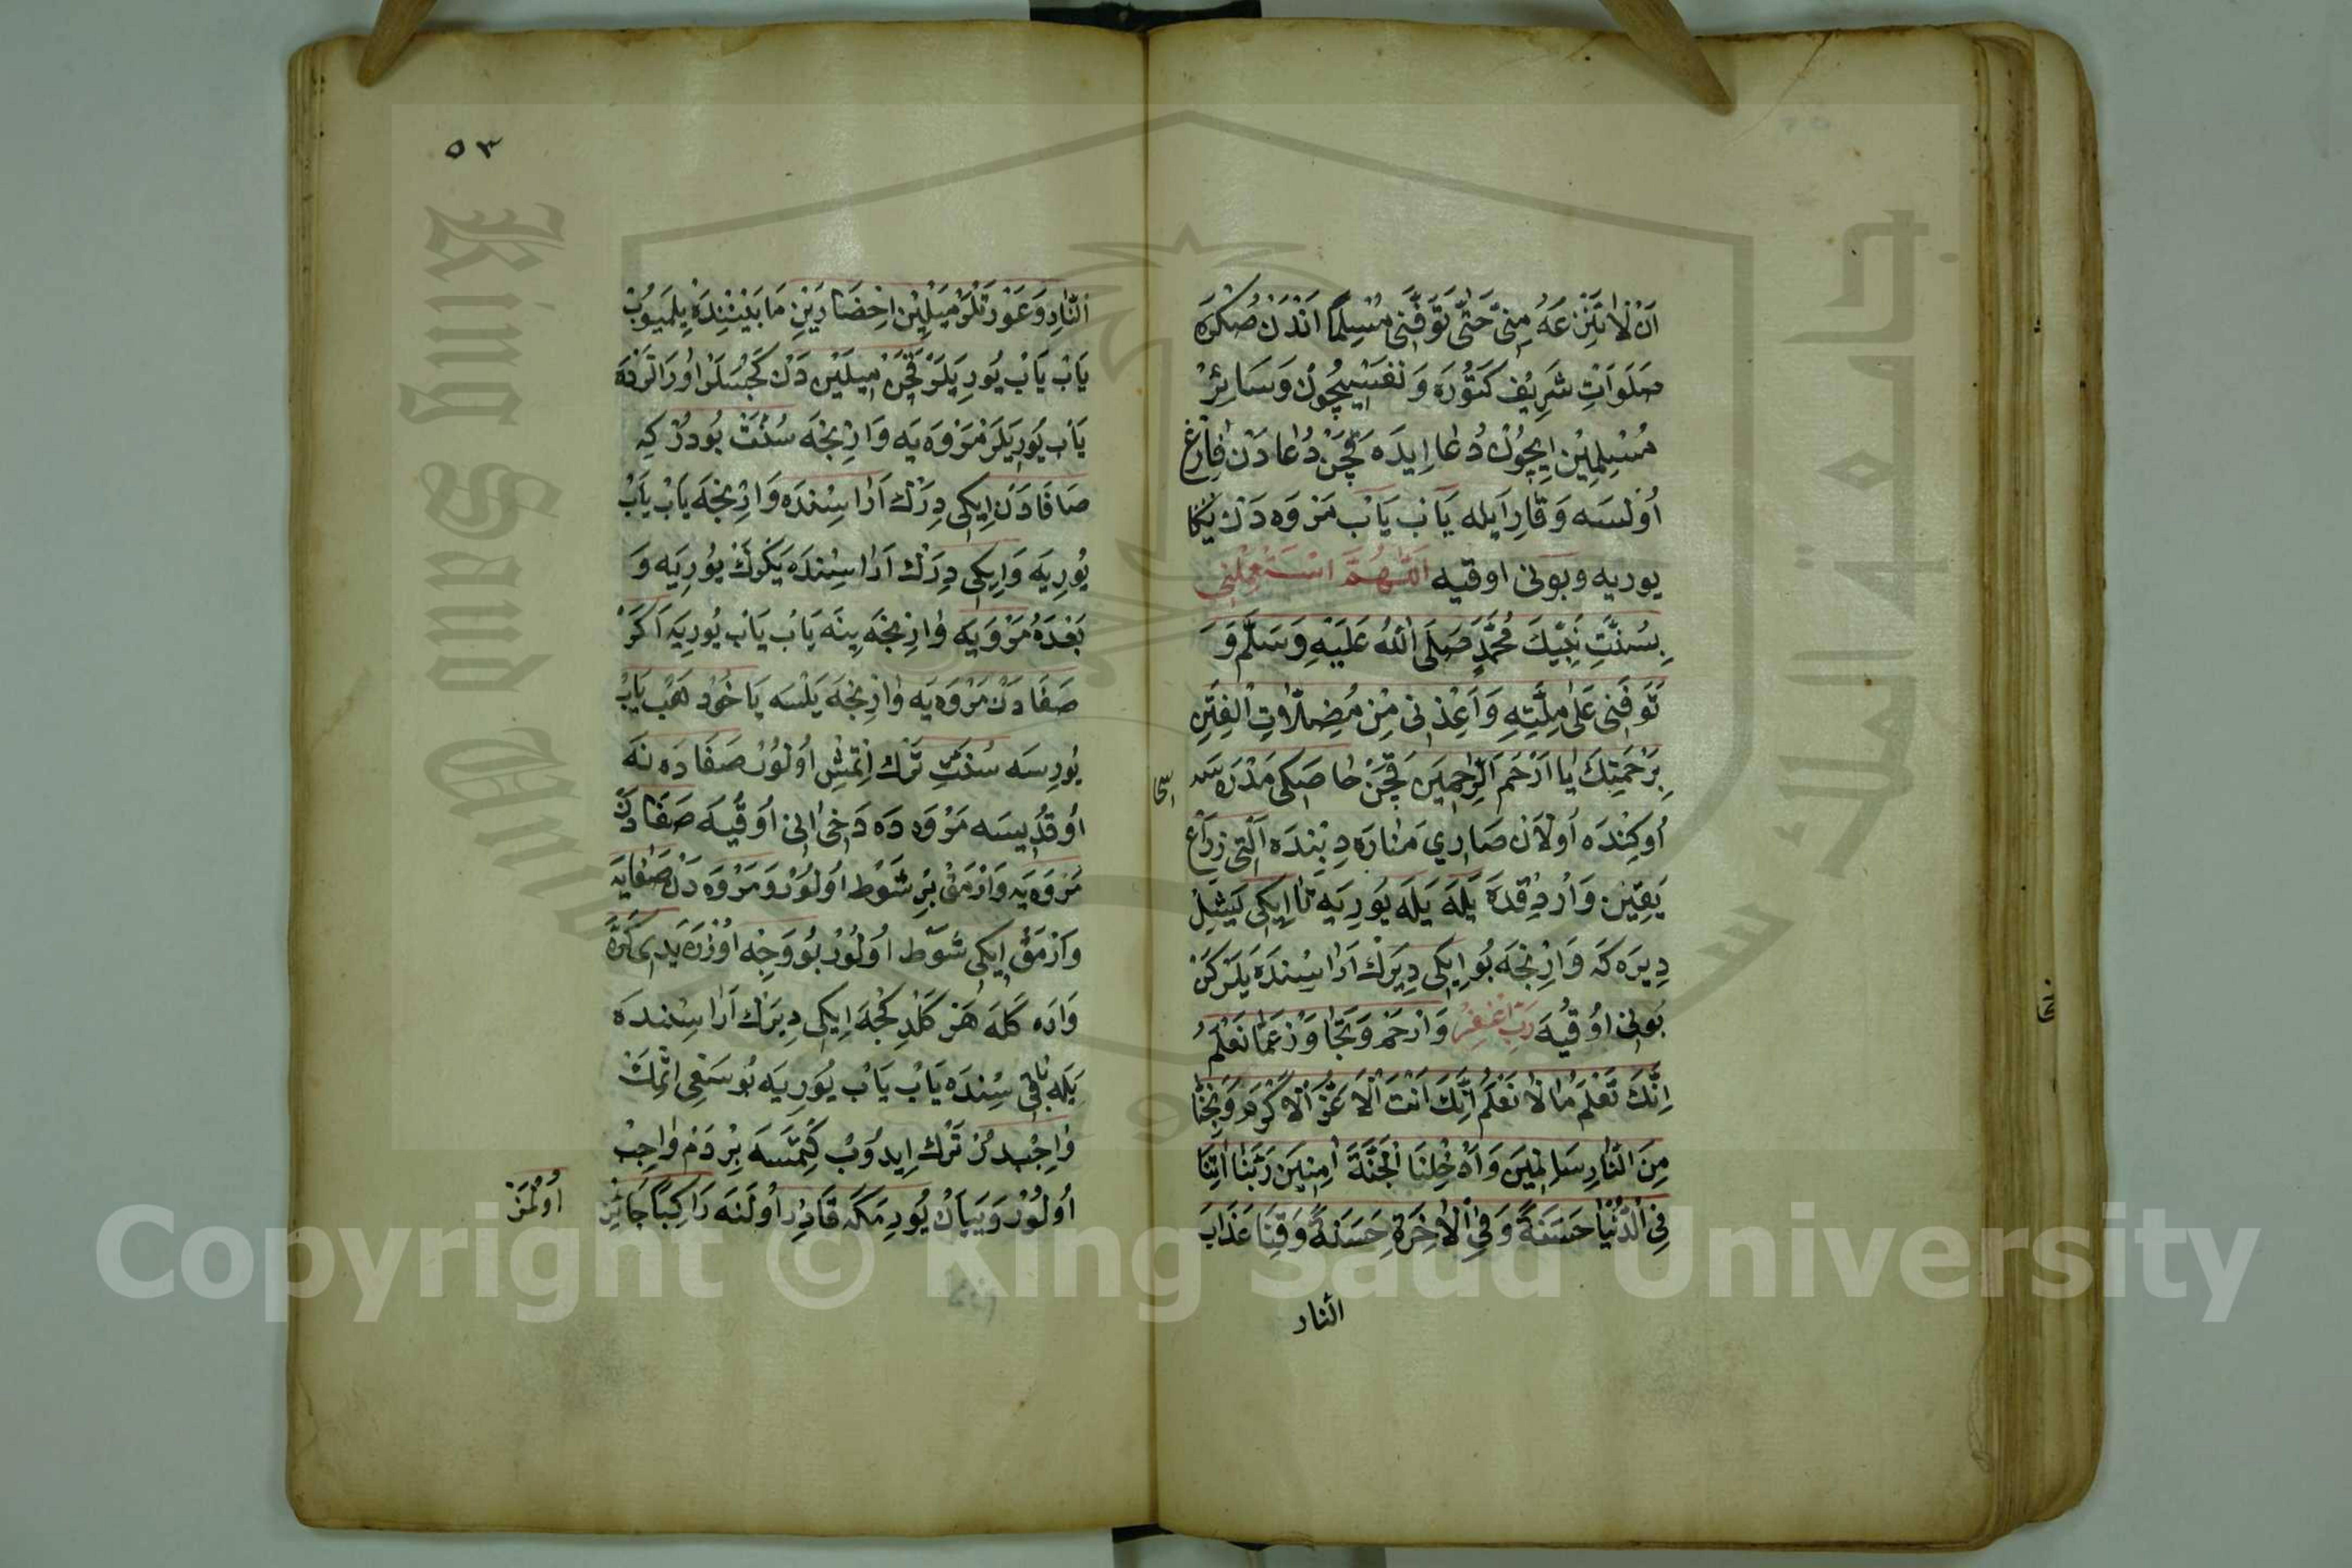 اَنْ لَا تَنْزِعَهُ مِنّٖى حَتّٰى تَوَفَّنٖى مُسْلِمًا اَنْدَنْ صُكْرَه
صَلَوَاتِ شَرِيفْ كَتُورَه وَنَفْسِيچُونْ وَسَائِرْ
مُسْلِمِينْ اِيچُونْ دُعَا اِيدَه قَچَنْ دُعَادَنْ فَارِغْ
اُولْسَه وَقَارِ اَيلَه يَاب يَابْ مَرْوَه دَنْ يَكَا
يوريه وبونى اوقيه اَللّٰهُمَّ اسْتَعْمِلْنِي
بِسُنَّتِ نَبِيِّكَ مُحَمَّدٍ صَلَى اللهُ عَلَيْهِ وَسَلَّمَ وَ
تَوَفَّنٖى عَلٰى مِلَّتِهِ وَاَعِذْنٖى مِنْ مُضِلَّاتِ الْفِتَنِ
بِرَحْمَتِكَ يَا اَرْحَمَ الرَّاحِمِينَ قَچَنْ
اُوكِنْدَه اُولَانْ صَارِي مَنَارَه دِبِنْدَه اَلْتِى زِرَاعْ
يَقِينْ وَارْدِقْدَه يَلَه يَلَه يُورِيَه تَا اِيكِى يَشِيلْ
دِيرَكَه وَارِنْجَه بُو اِيكِى دِيرَكْ اَرَاسِنْدَه يَلَرْكَنْ
بُونِى اوُقُيَه رَبِّ اغْفِرْ وَارْحَمْ وَتَجَاوَزْ عَمَّا تَعْلَمُ
اِنَّكَ تَعْلَمُ مَا لَا نَعْلَمُ اِنَّكَ اَنْتَ الْاَعَزُّ الْاَكْرَمُ وَنَجِّنَا
مِنَ النَّارِ سَالِمِينَ وَاَدْخِلْنَا الْجَنَّةَ اٰمِنِينَ رَبَّنَا اٰتِنَا
فِى الدُّنْيَا حَسَنَةً وَفِى الْاٰخِرَةِ حَسَنَةً وَقِنَا عَذَابَ
النار
٥٣
النَّارِ وَعَوْرَتْلَرْ مِيلَيْنِ اَخْضَرَيْنِ مَابَيْنِنْدَه يِلْمَيُوبْ
يَابْ يَابْ يُورِيَلَرْ قَچَنْ مِيلَيْنْ دَنْ كَچْسَلَرْ اُورَالَرْدَه
يَاب يُورِيَلَرْ مَرْوَه يَه وَارِنْجَه سُنَّتْ بُودُرْ كِه
صَافَادَنْ اِيكِى دِرَكْ اَرَاسِنْدَه وَارِنْجَه يَابْ يَابْ
يُورِيَه وَاِيكِى دِرَكْ اَرَاسِنْدَه يَكْرَكْ يُورِيَه وَ
بَعْدَهُ مَرْوَيَه وَارِنْجَه يِنَه يَابْ يَابْ يُورِيَه اَكَرْ
صَفَادَنْ مَرْوَه يَه وَارِنْجَه يَلْسَه يَاخُودْ هَبْ يَابْ
يُورِسَه سُنَّتِ تَرْك اِتْمِشْ اُولُورْ صَفَادَه نَه
اُوقُدِيسَه مَرْوَه دَه دَخِى اَنِى اُوقُيَه صَفَادَنْ
مَرْوَه يَه وَارْمَقْ بِرْ شَوْط اُولُورْ وَمَرْوَه دَنْ صَفَايَه
وَارْمَقْ اِيكِى شَوْط اُولُورْ بُو وَجِه اُوزَرَه يَدِى كَرَّه
وَارَه كَلَه هَرْ كَلْدِكْجَه اِيكِى دِيرَكْ اَرَاسِنْدَه
يَلَه بَاقِى سِنْدَه يَابْ يَابْ يُورِيَه بُو سَعْيِى اِتْمَكْ
وَاجِبْدِرْ تَرْك اِيدُوبْ كِتْسَه بِرْ دَمْ وَاجِبْ
اُولُورْ وَيَيَانْ يُورِمَكَه قَادِرْ اُولَنَه رَاكِبًا جَائِزْ
اُولْمَزْ
Copyright © King Saud University
King Saud University
جامعة الملك سعود